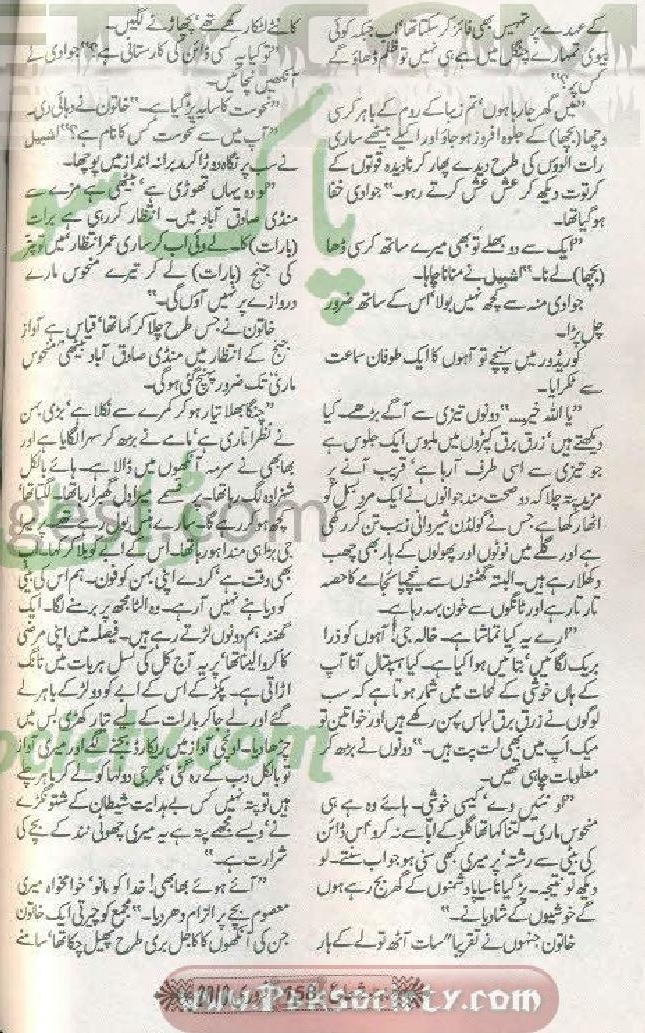 کے عہدے پر تمہیں بھی فائز کر سکتا تھا، اب جبکہ کوئی
بیوی تمہارے چنگل میں ہے ہی نہیں تو ظلم ڈھاؤ گے
کس پر؟“
”میں گھر جا رہا ہوں، تم زیبا کے روم کے باہر کرسی
وچھا (بچھا) کے جلوہ افروز ہو جاؤ اور اکیلے بیٹھے ساری
رات الوؤں کی طرح دیدے پھاڑ کر نادیدہ قوتوں کے
کرتوت دیکھ کر عش عش کرتے رہو۔“ جوادی خفا
ہو گیا تھا۔
”ایک سے دو بھلے تو بھی میرے ساتھ کرسی ڈھا
(بچھا) لے نا۔“ اشبیل نے منانا چاہا۔
جوادی منہ سے کچھ نہیں بولا، اس کے ساتھ ضرور
چل پڑا۔
کوریڈور میں پہنچے تو آہوں کا ایک طوفان سماعت
سے ٹکرایا۔
”یا اللہ خیر.....“ دونوں تیزی سے آگے بڑھے۔ کیا
دیکھتے ہیں، زرق برق کپڑوں میں ملبوس ایک جلوس ہے
جو تیزی سے اسی طرف آ رہا ہے، قریب آنے پر
مزید پتہ چلا کہ دو صحت مند جوانوں نے ایک مرد بسمل کو
اٹھا رکھا ہے جس نے گولڈن شیروانی زیب تن کر رکھی
ہے اور گلے میں نوٹوں اور پھولوں کے ہار بھی چھب
دکھلا رہے ہیں۔ البتہ گھٹنوں سے نیچے پاجامے کا حصہ
تار تار ہے اور ٹانگوں سے خون بہہ رہا ہے۔
”ارے یہ کیا تماشا ہے۔ خالہ جی! آہوں کو ذرا
بریک لگائیں، بتائیں ہوا کیا ہے۔ کیا ہسپتال آنا آپ
کے ہاں خوشی کے لمحات میں شمار ہوتا ہے کہ سب
لوگوں نے زرق برق لباس پہن رکھے ہیں اور خواتین تو
میک اپ میں بھی لت پت ہیں۔“ دونوں نے بڑھ کر
معلومات چاہی تھیں۔
”او نئیں وے، کیسی خوشی۔ ہائے وہ ہے ہی
منحوس ماری۔ کتنا کہا تھا گلو کے ابا سے نہ کرو، اس ڈائن
کی بیٹی سے رشتہ، پر میری کبھی سنی ہو جو اب سنتے۔ لو
دیکھ لو نتیجہ۔ پڑ گیا نا سیاپا، دشمنوں کے گھر بج رہے ہوں
گے خوشیوں کے شادیانے۔“
خاتون جنہوں نے تقریباً سات آٹھ تولے کے ہار
کانٹے لٹکا رکھے تھے، بچھاؤنے لگیں۔
”تو کیا یہ کسی ڈائن کی کارستانی ہے؟“ جوادی نے
آنکھیں نچائیں۔
”نحوست کا سایہ پڑ گیا ہے۔“ خاتون نے دہائی دی۔
”آپ میں سے نحوست کس کا نام ہے؟“ اشبیل
نے سب پر نگاہ دوڑا کر مدبرانہ انداز میں پوچھا۔
”لو وہ یہاں تھوڑی ہے، بیٹھی ہے مزے سے
منڈی صادق آباد میں۔ انتظار کر رہی ہے برات
(بارات) کا۔ لے وئی اب کر ساری عمر انتظار، میں تو پتر
کی جنج (بارات) لے کر تیرے منحوس مارے
دروازے پر نہیں آؤں گی۔“
خاتون نے جس طرح چلا کر کہا تھا، قیاس ہے آواز
جنج کے انتظار میں منڈی صادق آباد بیٹھی، منحوس
ماری تک ضرور پہنچ گئی ہو گی۔
”چنگا بھلا تیار ہو کر کمرے سے نکلا ہے، بڑی بہن
نے نظر اتاری ہے، مامے نے بڑھ کر سہرا لگایا ہے اور
بھابھی نے سرمہ آنکھوں میں ڈالا ہے۔ ہائے بالکل
شہزادہ لگ رہا تھا۔ پر قسمے میرا دل گھبرا رہا تھا۔ لگتا تھا،
کچھ ہو کر رہے گا۔ سارے ہنس بول رہے تھے پر میرا
جی بڑا ہی مندا ہو رہا تھا۔ اس کے ابے کو بلا کر کہا، اب
بھی وقت ہے، کر دے اپنی بہن کو فون۔ ہم اس کی بیٹی
کو دیاہنے نہیں آ رہے۔ وہ الٹا مجھ پر برسنے لگا۔ ایک
گھنٹہ ہم دونوں لڑتے رہے ہیں۔ فیصلہ میں اپنی مرضی
کا کروا لیتا تھا، پر یہ آج کل کی نسل ہر بات میں ٹانگ
اڑاتی ہے۔ پکڑ کے اس کے ابے کو دو لڑکے باہر لے
گئے اور لے جا کر بارات کے لیے تیار کھڑی بس میں
چڑھا دیا۔ اونچی آواز میں ریکارڈ بجنے لگے اور میری آواز
تو بالکل دب کے رہ گئی، پھر جی دولہا کو لے کر باہر نکلے
ہیں تو پتہ نہیں کس بے ہدایت شیطان کے شتونگڑے
نے، ویسے مجھے پتہ ہے یہ میری چھوٹی نند کے بچے کی
شرارت ہے۔“
”آئے ہوئے بھابھی! خدا کو مانو، خوامخواہ میری
معصوم بچے پر الزام دھر دیا۔“ مجمع کو چیرتی ایک خاتون
جن کی آنکھوں کا کاجل بری طرح پھیل چکا تھا، سامنے
158
2010
www.Paksociety.com